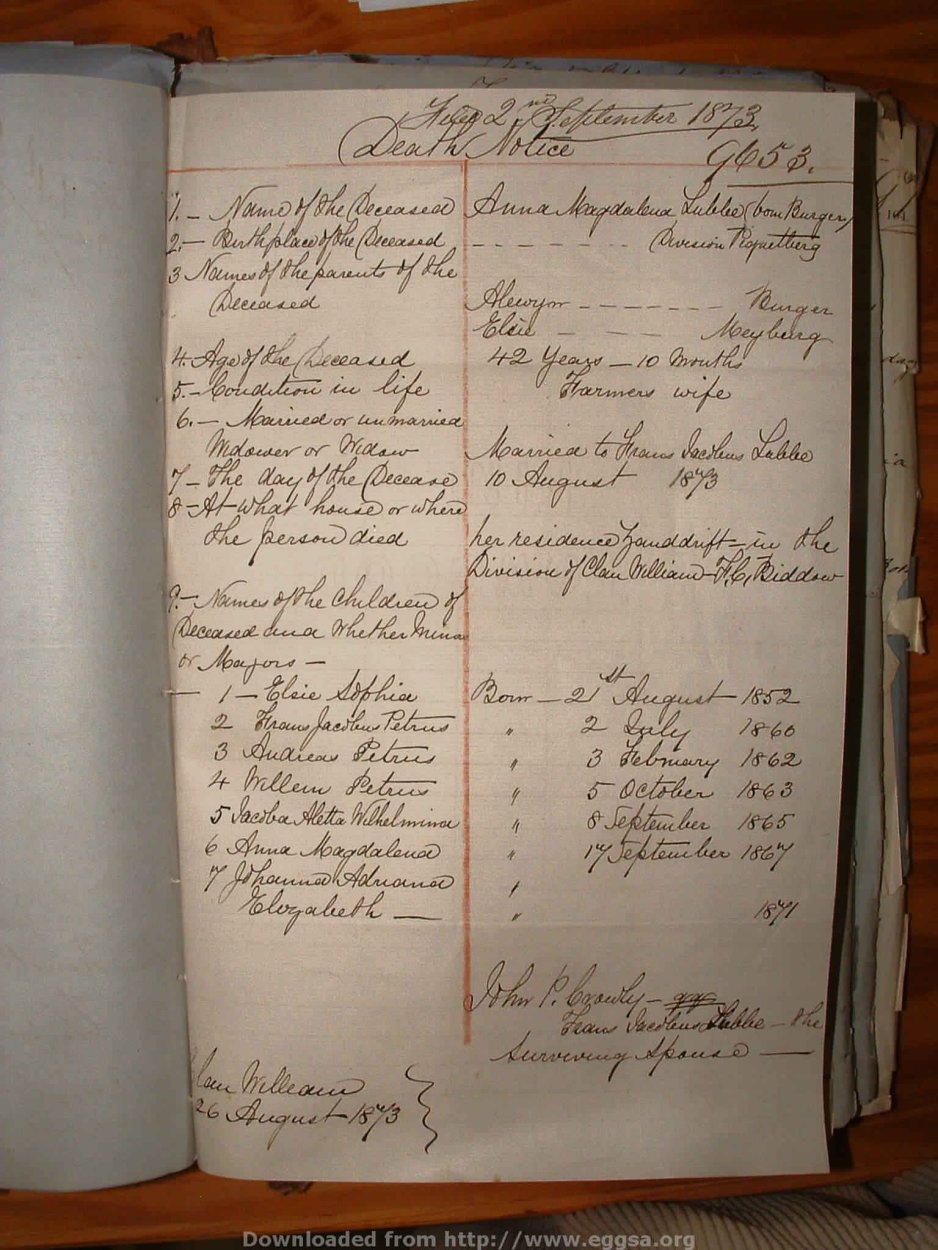 Filed 2nd September 1873
Death Notice
9653.
1. – Name of the Deceased Anna Magdalena Lubbe (born Burger)
2. – Birthplace of the Deceased – – – – – – – Division Piquetberg
3 Names of the parents of the
Deceased Alewyn – – – – – – Burger
Elsie – – – Meyburg
4. Age of the Deceased 42 Years – 10 Months
5. – Condition in life Farmers wife
6. – Married or unmarried
Widower or Widow Married to Frans Jacobus Lubbe
7 – The day of the Decease 10 August 1873
8 – At what house or where
the person died her residence Zanddrift – in the
Division of Clan William –
9. – Names of the Children of
Deceased and Whether Minors
or Majors –
1 – Elsie Sophia Born – 21st August – 1852
2 Frans Jacobus Petrus " 2 July 1860
3 Andreas Petrus " 3 February 1862
4 Willem Petrus " 5 October 1863
5 Jacoba Aletta Wilhelmina " 8 September 1865
6 Anna Magdalena " 17 September 1867
7 Johanna Adriana "
Elizabeth — " 1871
John P. Crowly –
Frans Jacobus Lubbe – the
Surviving Spouse —
Clan William
26 August 1873
Downloaded from http://www.eggsa.org